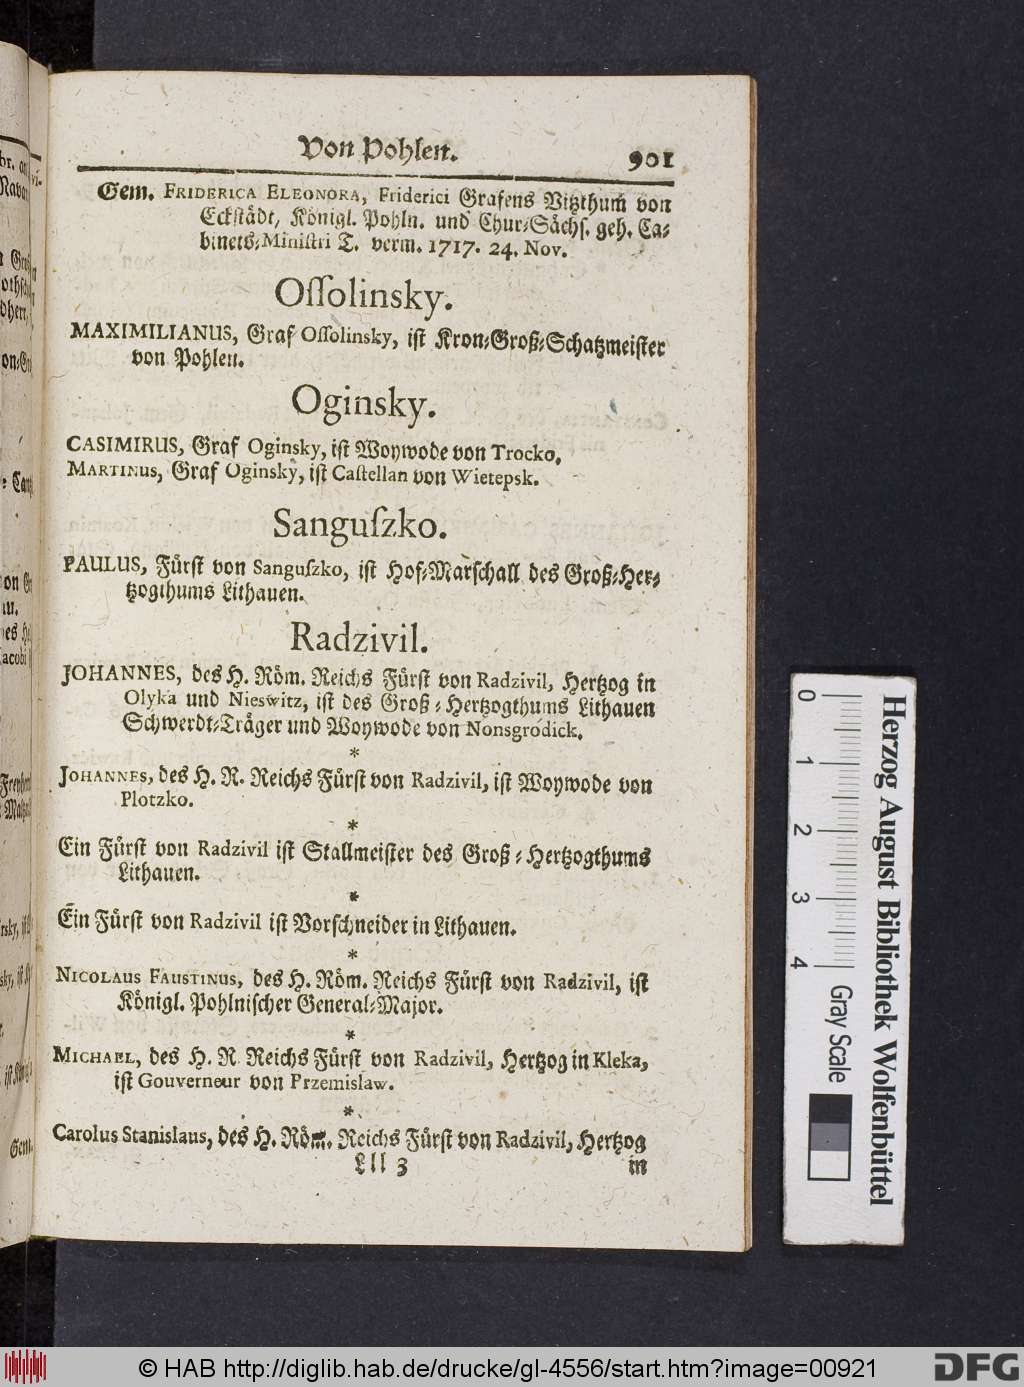 Von Pohlen. 901
Gem. FRIDERICA ELEONORA, Friderici Grafens Vitzthum von
Eckstädt, Königl. Pohln. und Chur-Sächs. geh. Ca-
binets-Ministri T. verm. 1717. 24. Nov.
Oſſolinsky.
MAXIMILIANUS, Graf Oſſolinsky, iſt Kron-Groß-Schatzmeiſter
von Pohlen.
Oginsky.
CASIMIRUS, Graf Oginsky, iſt Woywode von Trocko.
MARTINUS, Graf Oginsky, iſt Caſtellan von Wietepsk.
Sanguſzko.
PAULUS, Fürſt von Sanguſzko, iſt Hof-Marſchall des Groß-Her-
tzogthums Lithauen.
Radzivil.
JOHANNES, des H. Röm. Reichs Fürſt von Radzivil, Hertzog in
Olyka und Nieswitz, iſt des Groß-Hertzogthums Lithauen
Schwerdt-Träger und Woywode von Nonsgrodick.
*
JOHANNES, des H. R. Reichs Fürſt von Radzivil, iſt Woywode von
Plotzko.
*
Ein Fürſt von Radzivil iſt Stallmeiſter des Groß-Hertzogthums
Lithauen.
*
Ein Fürſt von Radzivil iſt Vorſchneider in Lithauen.
*
NICOLAUS FAUSTINUS, des H. Röm. Reichs Fürſt von Radzivil, iſt
Königl. Pohlniſcher General-Major.
*
MICHAEL, des H. R. Reichs Fürſt von Radzivil, Hertzog in Kleka,
iſt Gouverneur von Przemislaw.
*
Carolus Stanislaus, des H. Röm. Reichs Fürſt von Radzivil, Hertzog
Lll 3 in
0 1 2 3 4 Gray Scale
Herzog August Bibliothek Wolfenbüttel
© HAB http://diglib.hab.de/drucke/gl-4556/start.htm?image=00921
DFG